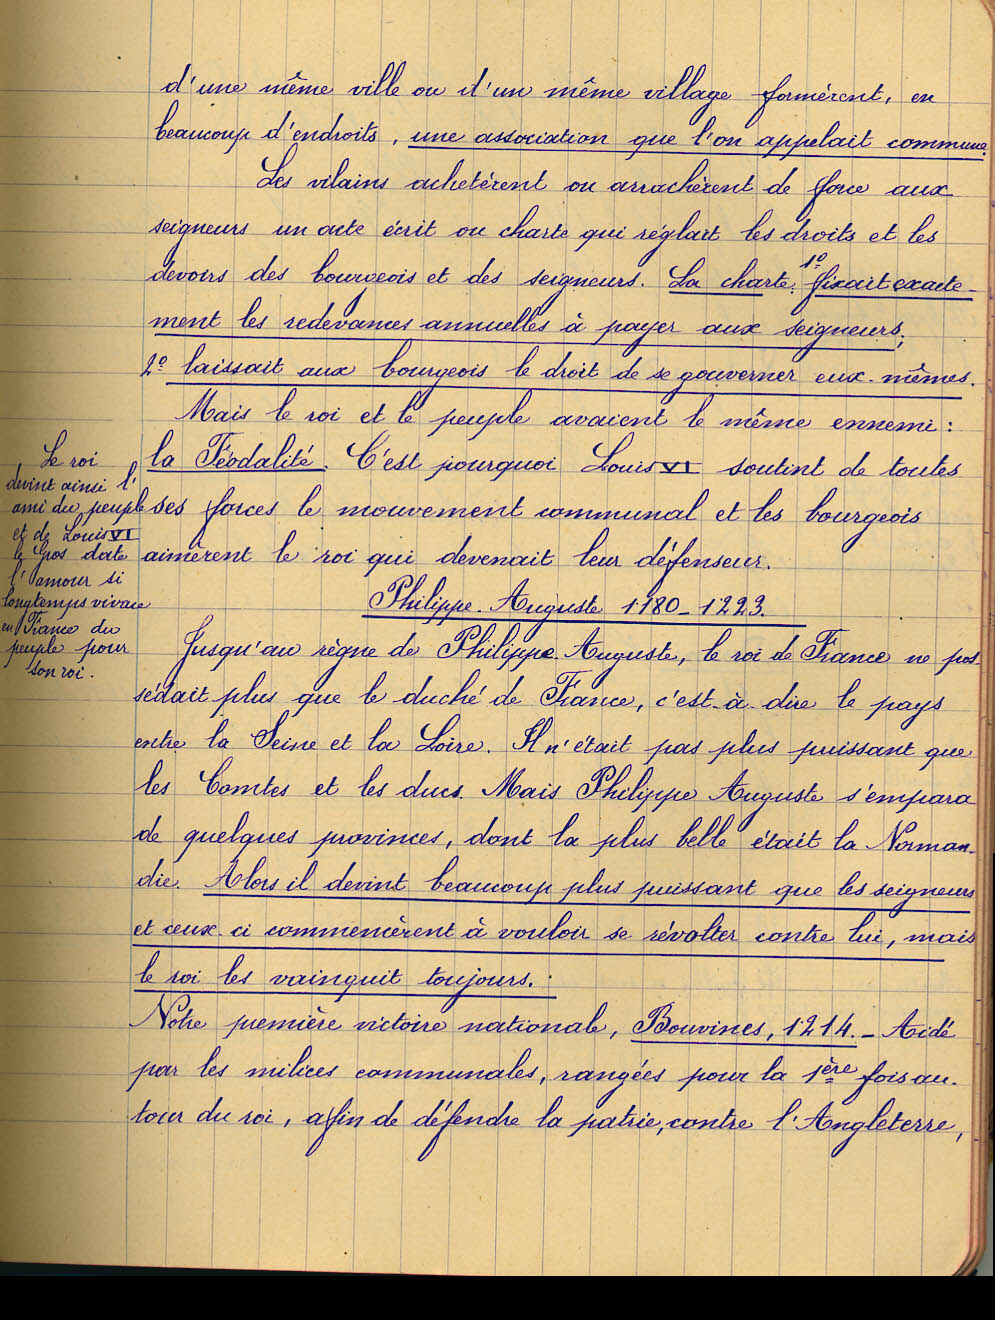 d'une même ville ou d'un même village formèrent, en
beaucoup d'endroits, une association que l'on appelait commune.
Les vilains achetèrent ou arrachèrent de force aux
seigneurs un acte écrit ou charte qui réglart les droits et les
devoirs des bourgeois et des seigneurs. La charte: 1º fixait exacte-
ment les redevances annuelles à payer aux seigneurs;
2º laissait aux bourgeois le droit de se gouverner eux-mêmes.
Mais le roi et le peuple avaient le même ennemi:
la Féodalité. C'est pourquoi Louis VI soutint de toutes
ses forces le mouvement communal et les bourgeois
aimèrent le roi qui devenait leur défenseur.
Le roi
devint ainsi l'
ami du peuple
et de Louis VI
le Gros date
l'amour si
longtemps vivace
en France du
peuple pour
son roi.
Philippe-Auguste 1180-1223.
Jusqu'au règne de Philippe-Auguste, le roi de France ne pos-
sédait plus que le duché de France, c'est-à-dire le pays
entre la Seine et la Loire. Il n'était pas plus puissant que
les Comtes et les ducs. Mais Philippe Auguste s'empara
de quelques provinces, dont la plus belle était la Norman-
die. Alors il devint beaucoup plus puissant que les seigneurs
et ceux-ci commencèrent à vouloir se révolter contre lui, mais
le roi les vainquit toujours.:
Notre première victoire nationale, Bouvines, 1214. - Aidé
par les milices communales, rangées pour la 1ère fois au-
tour du roi, afin de défendre la patrie, contre l'Angleterre,